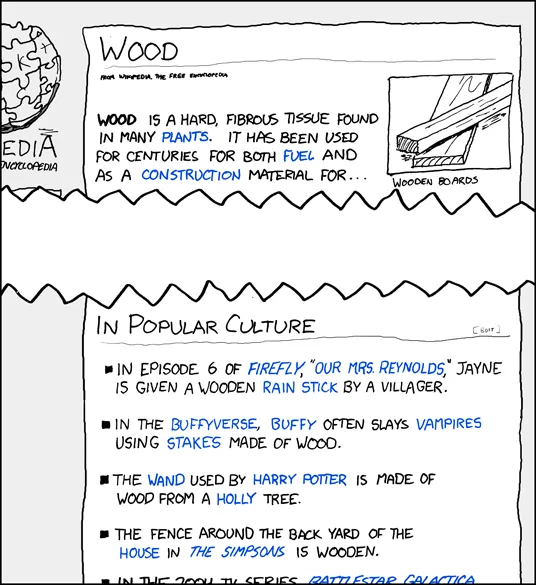 WOOD
FROM WIKIPEDIA, THE FREE ENCYCLOPEDIA
EDIA
NCYCLOPEDIA
WOOD IS A HARD, FIBROUS TISSUE FOUND
IN MANY PLANTS. IT HAS BEEN USED
FOR CENTURIES FOR BOTH FUEL AND
AS A CONSTRUCTION MATERIAL FOR...
WOODEN BOARDS
IN POPULAR CULTURE
[EDIT]
■ IN EPISODE 6 OF FIREFLY, "OUR MRS. REYNOLDS," JAYNE
IS GIVEN A WOODEN RAIN STICK BY A VILLAGER.
■ IN THE BUFFYVERSE, BUFFY OFTEN SLAYS VAMPIRES
USING STAKES MADE OF WOOD.
■ THE WAND USED BY HARRY POTTER IS MADE OF
WOOD FROM A HOLLY TREE.
■ THE FENCE AROUND THE BACK YARD OF THE
HOUSE IN THE SIMPSONS IS WOODEN.
■ IN THE 2004 TV SERIES BATTLESTAR GALACTICA